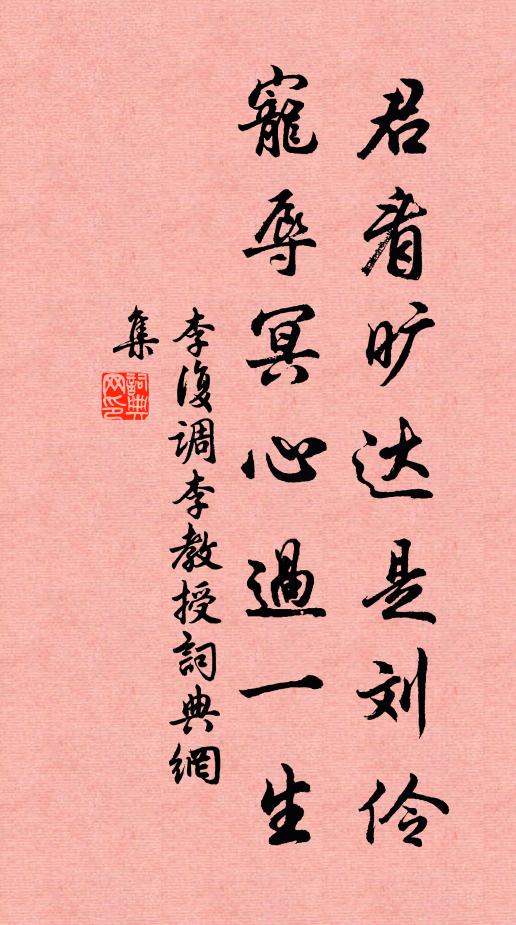 君看旷达是刘伶
寵辱冥心過一生
李復調李教授詞典網
集
詞典
网印